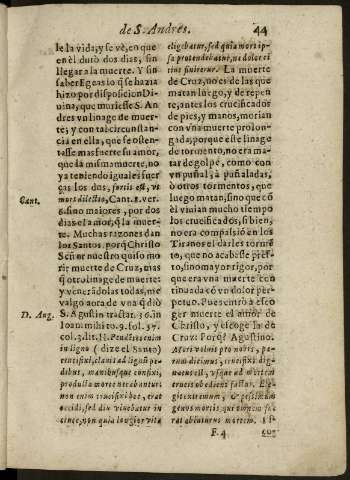 de S. Andrés. 44
le la vida, y se vè, en que
en èl durò dos dias, sin
llegar a la muerte. Y sin
saber Egeas lo q̃ se hazia
hizo por disposicion Di-
uina, que muriesse S. An
dres vn linage de muer-
te; y con tal circunstan-
cia en ella, que se osten-
tasse mas fuerte su amor,
que la misma muerte, no
ya teniendo iguales fuer
ças los dos, fortis est, vt
Cant. mors dilectio, Cant. 8. ver.
6. sino maiores, por dos
dias el amor, q̃ la muer-
te. Muchas razones dan
los Santos, porq̃ Christo
Señor nuestro quiso mo
rir muerte de Cruz, mas
q̃ otro linage de muerte:
y venerādolas todas, me
valgo aora de vna q̃ diò
D. Aug. S. Agustin tractat. 36. in
Ioan. mihi to. 9. fol. 57.
col. 3. lit. H. Pendētes enim
in ligno (dize el Santo)
crucifixi, clauis ad lignũ pe-
dibus, manibusque confixi,
producta morte necabantur:
non enim crucifixi hoc, erat
occidi, sed diu viuebatur in
cruce, non quia longior vita
eligebatur, sed quia mors ip-
sa protendebatur, ne dolor ci
tius finiretur. La muerte
de Cruz, no es de las que
matan luego, y de repen
te, antes los crucificados
de pies, y manos, morian
con vna muerte prolon-
gada; porque este linage
de tormento, no era ma-
tar de golpe, como con
vn puñal, à puñaladas,
ò otros tormentos, que
luego matan, sino que cō
èl viuian mucho tiempo
los crucificados, si bien,
no era compassiō en los
Tiranos el darles tormē
to, que no acabesse pres-
to, sino mayor rigor, por
que era vna muerte con
tinuada cō vn dolor per-
petuo. Pues entrò a esco
ger muerte el amor de
Christo, y escoge la de
Cruz: Porq̃? Agustino.
Mori voluit pro nobis, pa-
rum dicimus, crucifixi dig-
natus est, vsque ad mortem
crucis obediens factus. Eli-
git extremum, & pessimum
genus mortis, qui omnem fue
rat ablaturus mortem.
F. 4